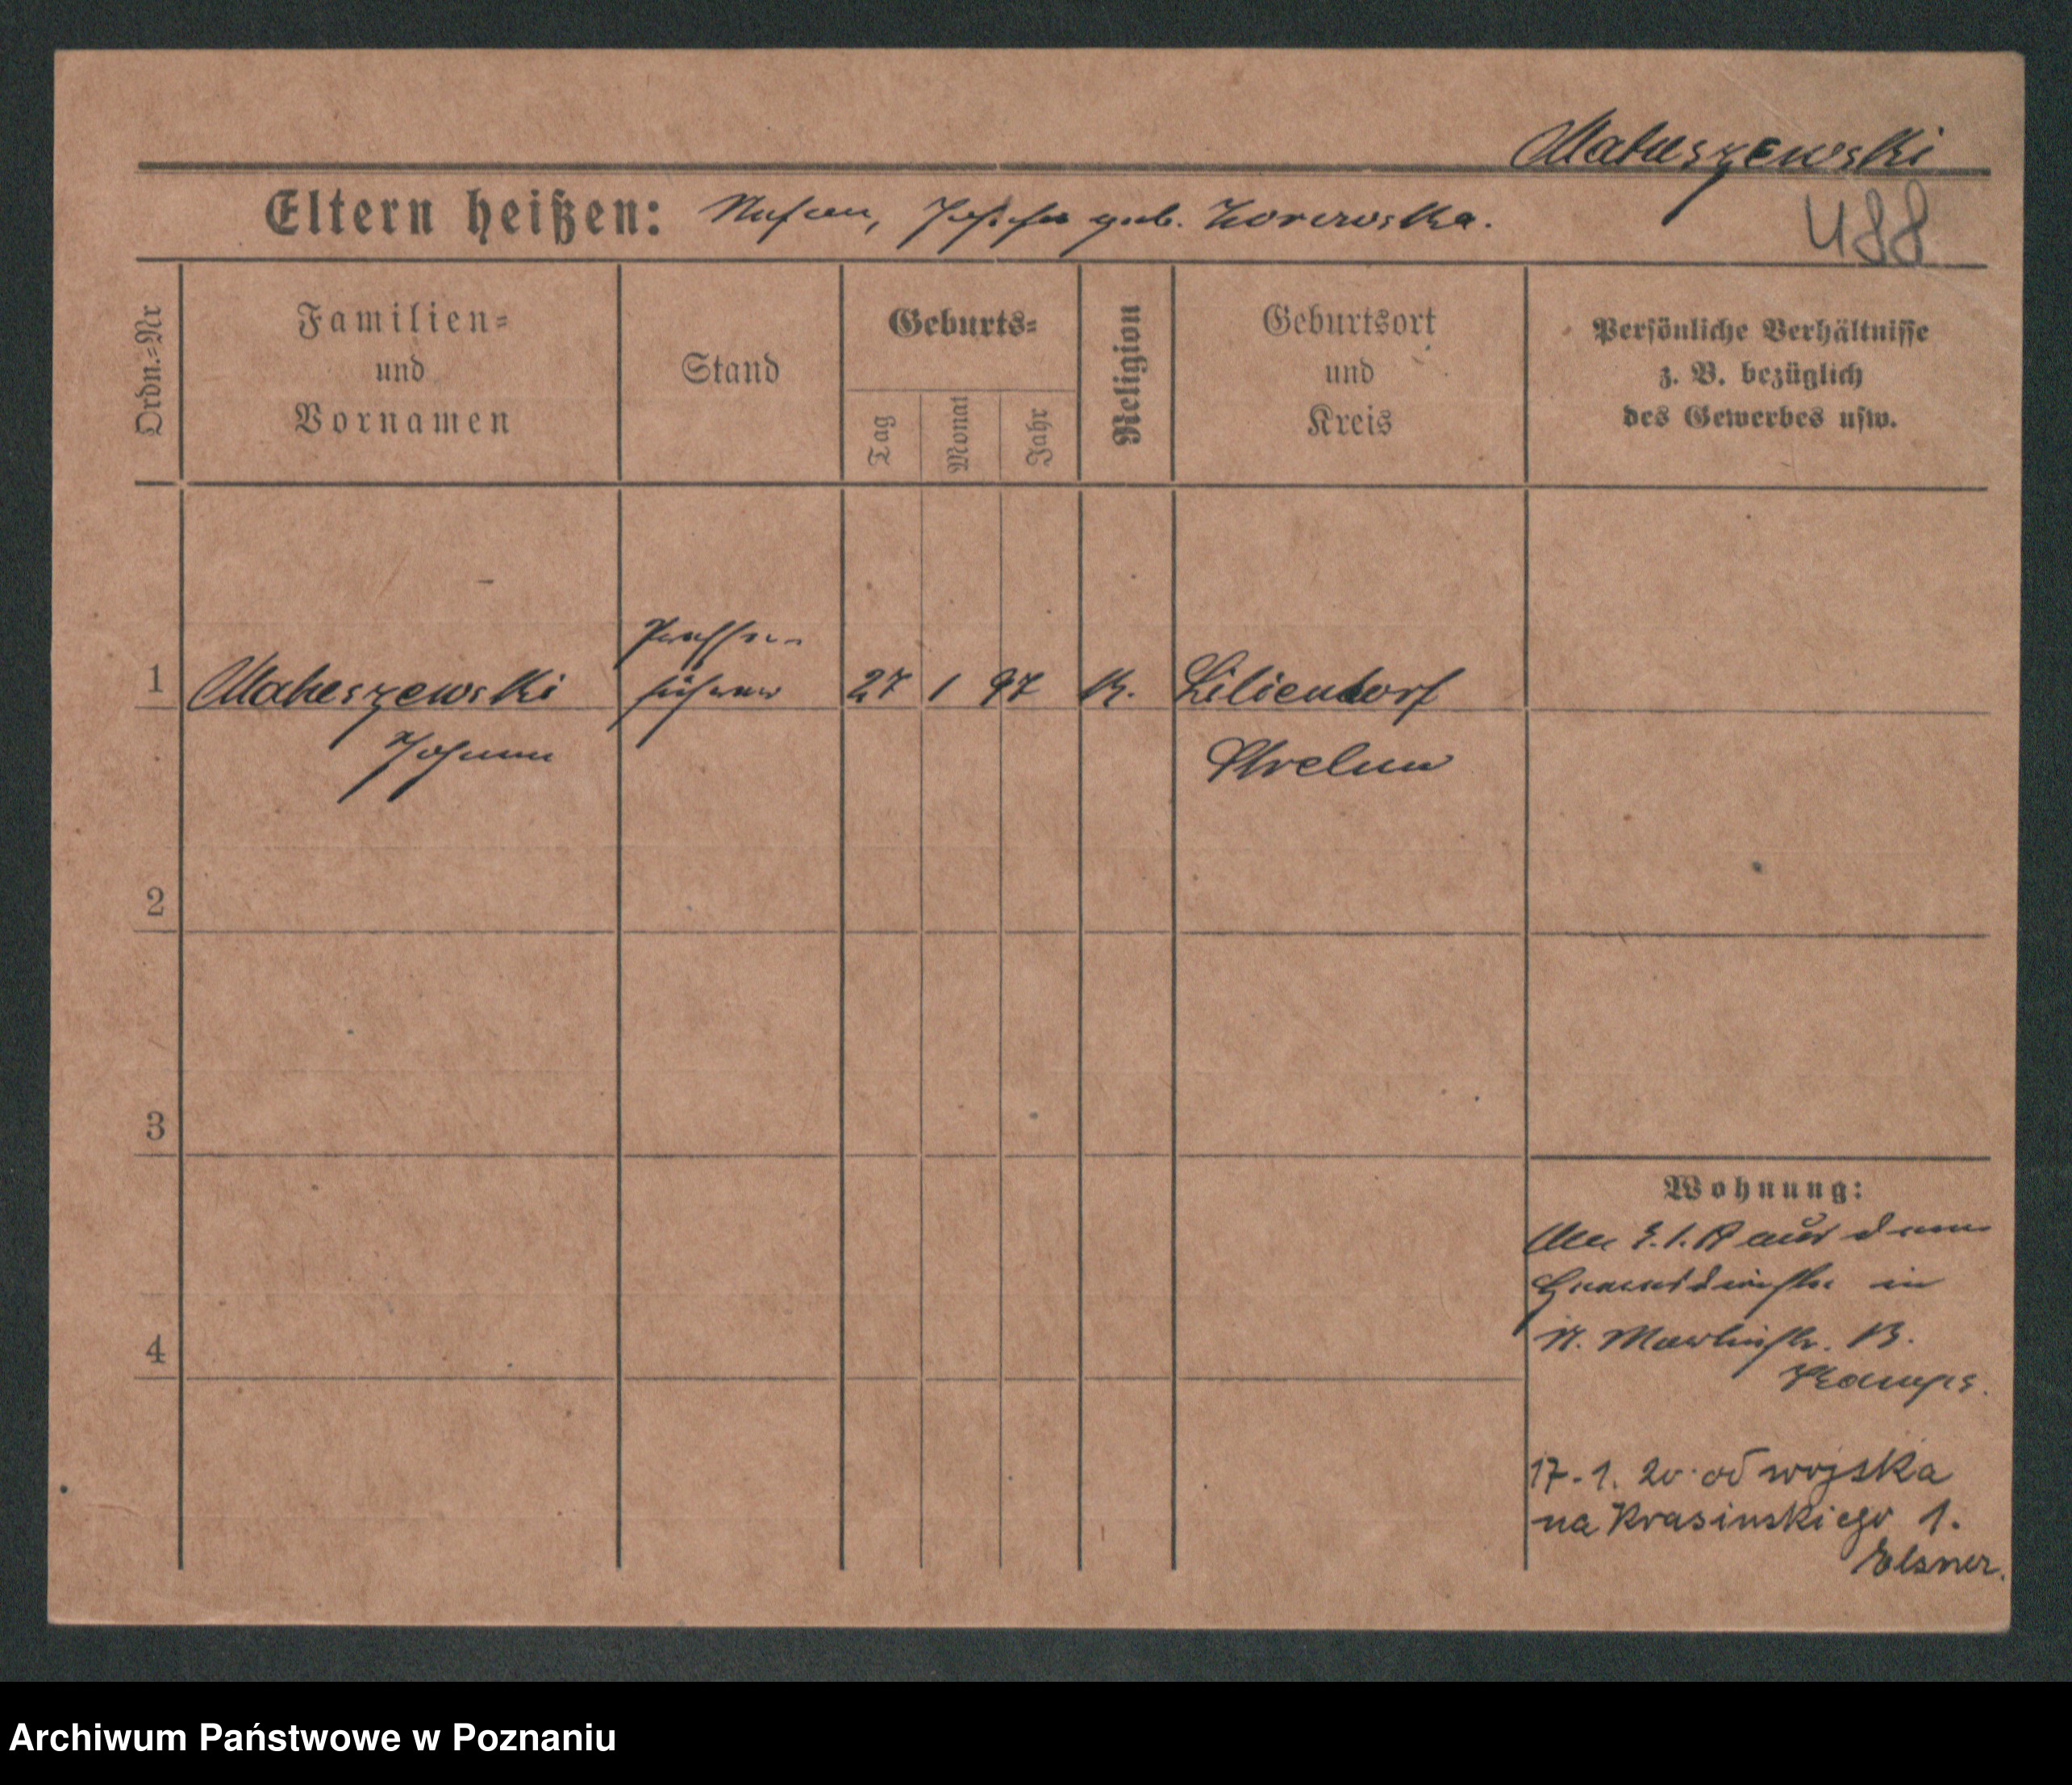 Matuszewski
Eltern heißen: geb. Zorowska.
488
Ordn.=Nr
Familien=
und
Vornamen
Stand
Geburts=
Tag
Monat
Jahr
Religion
Geburtsort
und
Kreis
Persönliche Verhältnisse
z. B. bezüglich
des Gewerbes usw.
1 Matuszewski führer 27 1 97 K. Liliendorf
Johann Strelno
2
3
4
Wohnung:
aus dem
in
17.1.20 od wojska
na Krasinskiego 1.
Elsner.
Archiwum Państwowe w Poznaniu